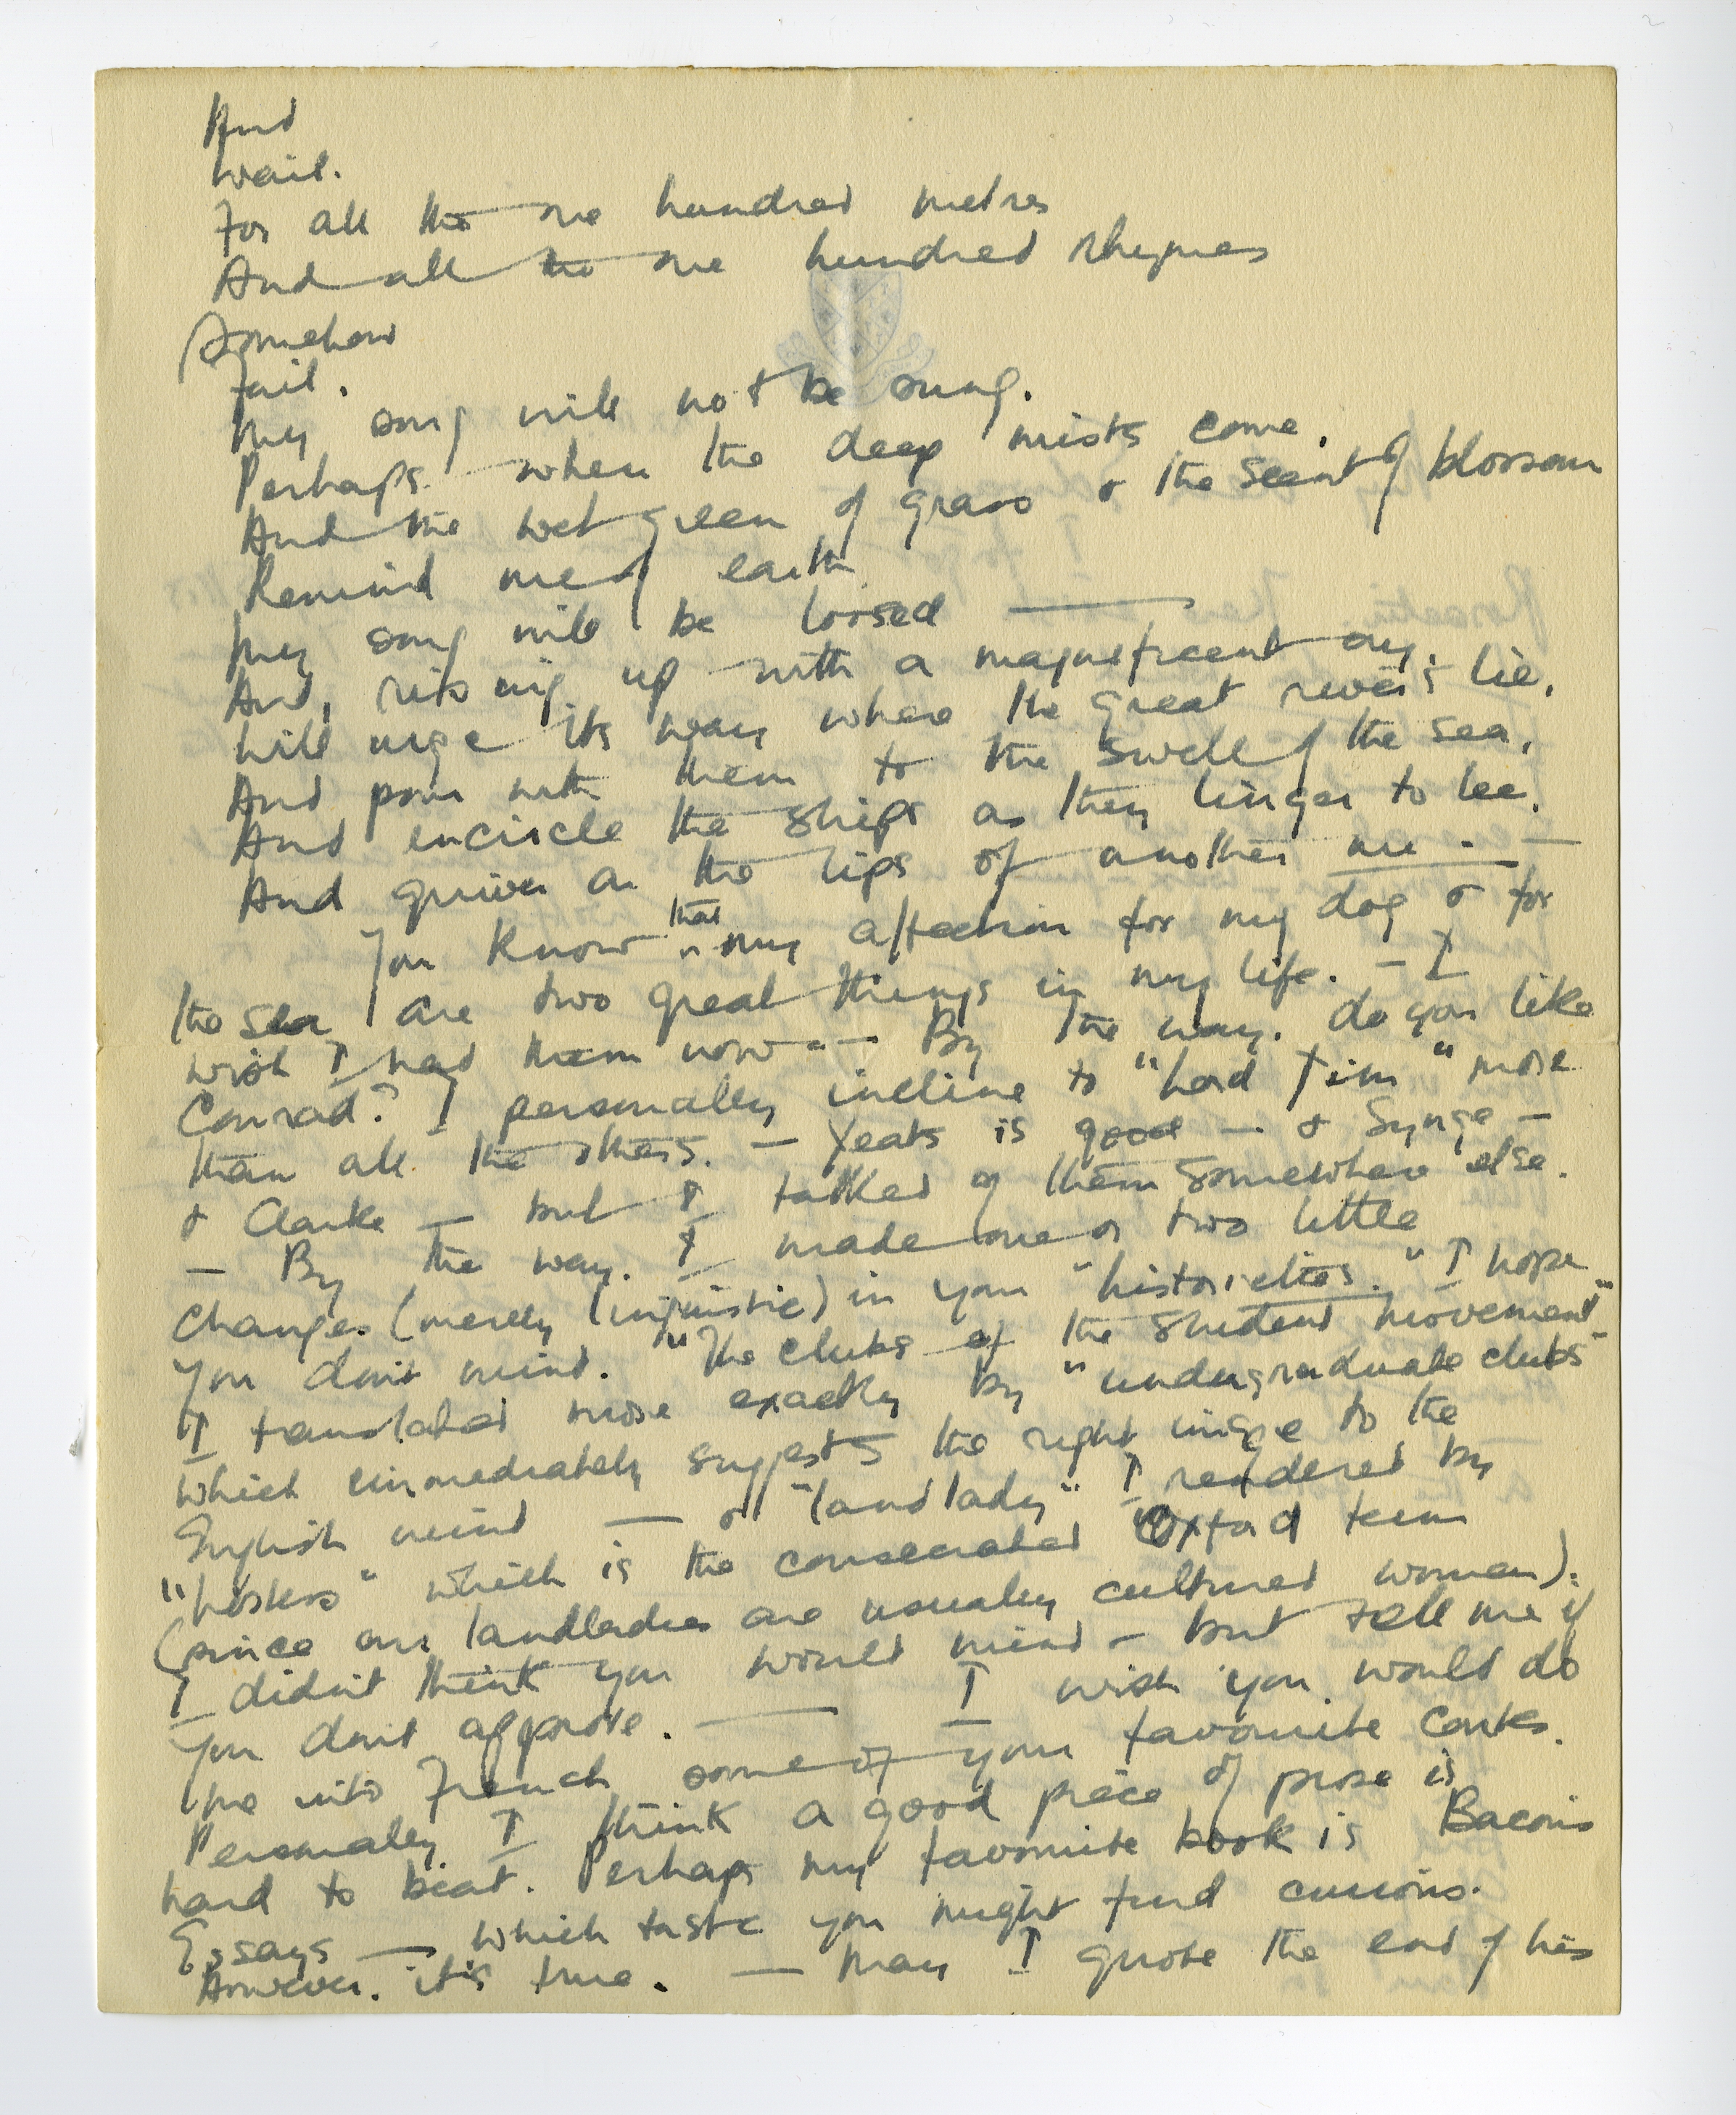 And
wait.
For all the one hundred metres
And all the one hundred rhymes
Somehow
Fail.
My song will not be sung.
Perhaps when the deep mists come,
And the wet green of grass & the scent of blossom
Remind me of earth
My song will be loosed —
And, rising up with a magnificent cry,
Will urge its way where the great rivers lie,
And pour with them to the swell of the sea,
And encircle the ships as they linger to lee,
And quiver on the lips of another me. —
You know that my affection for my dog & for
the sea are two great things in my life. - I
wish I had them now -- By the way. do you like
Conrad? I personally incline to "Lord Jim" more
than all the others. — Yeats is good — & Synge —
& Clarke — but I talked of them somewhere else.
— By the way. I made one or two little
changes (merely linguistic) in your "historiettes." I hope
you don't mind. "The clubs of the student movement"
I translated more exactly by "undergraduate clubs"
which immediately suggests the right image to the
English mind — & "landlady" I rendered by
"hostess" which is the consecrated Oxford term
(since our landladies are usually cultured women).
I didn't think you would mind - but tell me if
you don't approve. — I wish you would do
me into French some of your favourite contes.
Personally I think a good piece of prose is
hard to beat. Perhaps my favourite book is Bacon's
Essays — which taste you might find curious.
However. it's true. — May I quote the end of his